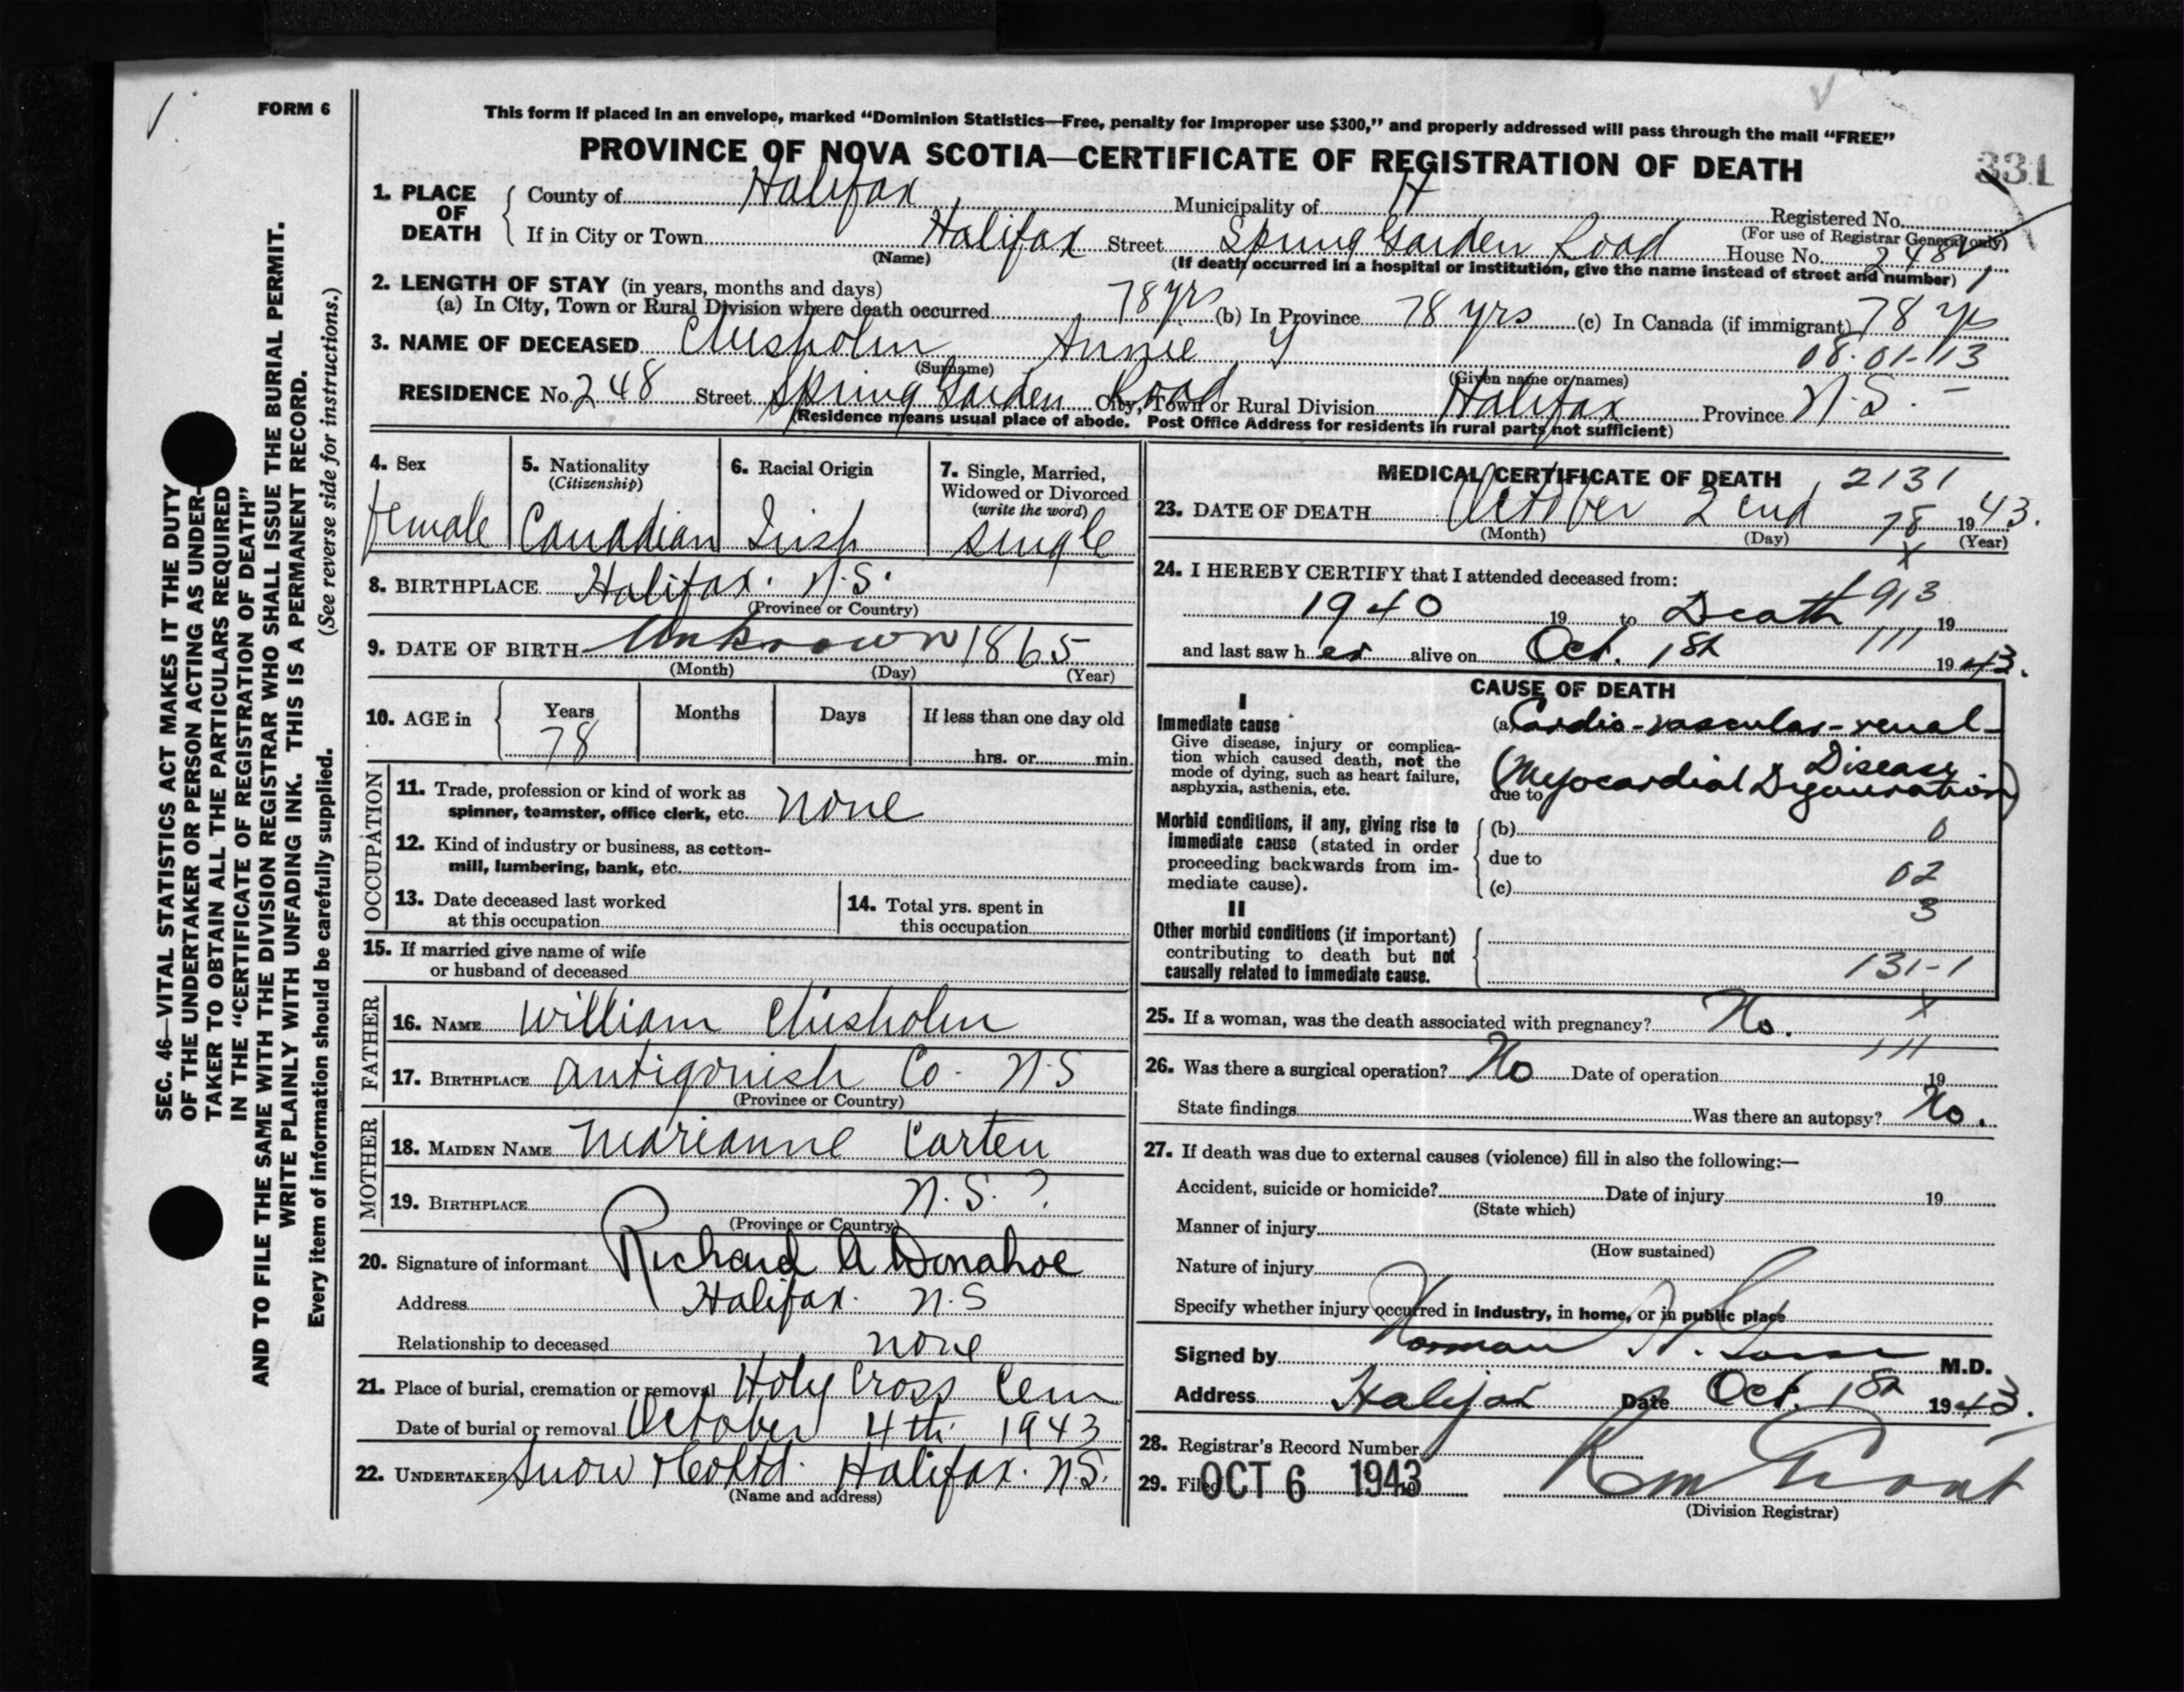 FORM 6
This form if placed in an envelope, marked “Dominion Statistics—Free, penalty for improper use $300,” and properly addressed will pass through the mail “FREE”
PROVINCE OF NOVA SCOTIA—CERTIFICATE OF REGISTRATION OF DEATH
331
1. PLACE OF DEATH
County of Halifax Municipality of H Registered No.
(For use of Registrar General only)
If in City or Town Halifax Street Spring Garden Road House No. 248
(Name) (If death occurred in a hospital or institution, give the name instead of street and number)
2. LENGTH OF STAY (in years, months and days)
(a) In City, Town or Rural Division where death occurred 78 yrs (b) In Province 78 yrs (c) In Canada (if immigrant) 78 yrs
3. NAME OF DECEASED Chisholm Annie Y 08-01-113
(Surname) (Given name or names)
RESIDENCE No. 248 Street Spring Garden Road City, Town or Rural Division Halifax Province N.S.
(Residence means usual place of abode. Post Office Address for residents in rural parts not sufficient)
4. Sex
female
5. Nationality
(Citizenship)
Canadian
6. Racial Origin
Irish
7. Single, Married,
Widowed or Divorced
(write the word)
single
8. BIRTHPLACE Halifax. N.S.
(Province or Country)
9. DATE OF BIRTH Unknown 1865
(Month) (Day) (Year)
10. AGE in
Years Months Days If less than one day old
78 hrs. or min.
OCCUPATION
11. Trade, profession or kind of work as
spinner, teamster, office clerk, etc. none
12. Kind of industry or business, as cotton-
mill, lumbering, bank, etc.
13. Date deceased last worked
at this occupation
14. Total yrs. spent in
this occupation
15. If married give name of wife
or husband of deceased
FATHER
16. NAME William Chisholm
17. BIRTHPLACE Antigonish Co. N.S
(Province or Country)
MOTHER
18. MAIDEN NAME Marianne Carten
19. BIRTHPLACE N.S. ?
(Province or Country)
20. Signature of informant Richard A Donahoe
Address Halifax. N.S
Relationship to deceased none
21. Place of burial, cremation or removal Holy Cross Cem
Date of burial or removal October 4th 1943
22. UNDERTAKER Snow & Co Ltd. Halifax. N.S.
(Name and address)
MEDICAL CERTIFICATE OF DEATH 2131
23. DATE OF DEATH October 2end 78 1943.
(Month) (Day) (Year)
X
24. I HEREBY CERTIFY that I attended deceased from:
1940 19 to Death 913 19
and last saw her alive on Oct. 1st 111 1943.
CAUSE OF DEATH
I
Immediate cause
Give disease, injury or complica-
tion which caused death, not the
mode of dying, such as heart failure,
asphyxia, asthenia, etc.
(a) Cardio-vascular-renal-
Disease
due to (Myocardial Degeneration)
Morbid conditions, if any, giving rise to
immediate cause (stated in order
proceeding backwards from im-
mediate cause).
(b) 0
due to 02
(c) 3
II
Other morbid conditions (if important)
contributing to death but not
causally related to immediate cause.
131-1
X
25. If a woman, was the death associated with pregnancy? No.
111
26. Was there a surgical operation? No Date of operation 19
State findings Was there an autopsy? No.
27. If death was due to external causes (violence) fill in also the following:—
Accident, suicide or homicide? Date of injury 19
(State which)
Manner of injury
(How sustained)
Nature of injury
Specify whether injury occurred in industry, in home, or in public place
Signed by Norman H. M.D.
Address Halifax Date Oct. 1st 1943.
28. Registrar's Record Number
29. Filed OCT 6 1943
(Division Registrar)
SEC. 46—VITAL STATISTICS ACT MAKES IT THE DUTY
OF THE UNDERTAKER OR PERSON ACTING AS UNDER-
TAKER TO OBTAIN ALL THE PARTICULARS REQUIRED
IN THE “CERTIFICATE OF REGISTRATION OF DEATH”
AND TO FILE THE SAME WITH THE DIVISION REGISTRAR WHO SHALL ISSUE THE BURIAL PERMIT.
WRITE PLAINLY WITH UNFADING INK. THIS IS A PERMANENT RECORD.
Every item of information should be carefully supplied. (See reverse side for instructions.)